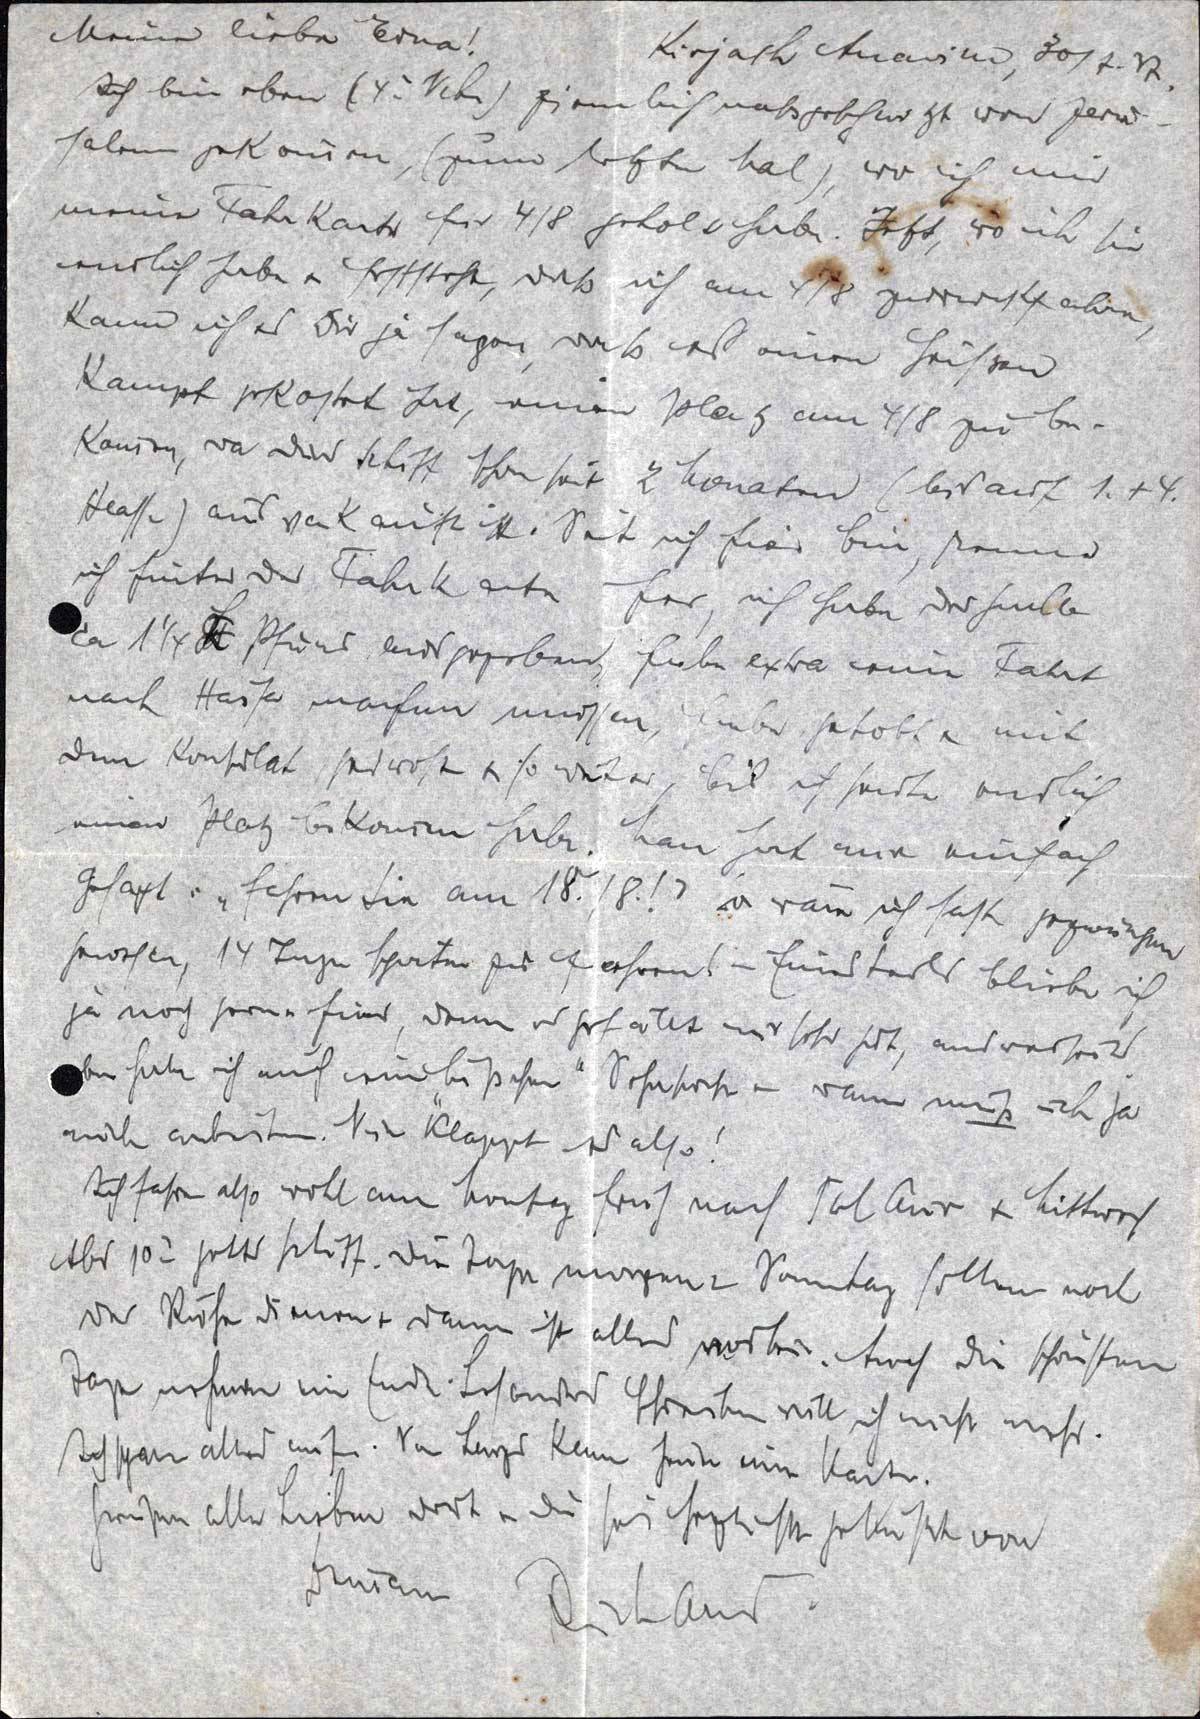 Meine liebe Erna!
Kirjath Anavim, 30/7.37.
Ich bin eben (4- Uhr) ziemlich abgehetzt von Jeru-
salem gekommen, (zum letzten Mal), wo ich mir
meine Fahrkarte für 4/8 geholt habe. Jetzt, wo ich sie
endlich habe & feststeht, daß ich am 4/8 zurückfahre,
kann ich es Dir ja sagen, daß es einen heißen
Kampf gekostet hat, einen Platz am 4/8 zu be-
kommen, da das Schiff schon seit 2 Monaten (bis auf 1. + 4.
Klasse) ausverkauft ist. Seit ich hier bin, renne
ich hinter der Fahrkarte her, ich habe deshalb
ca 1 1/4 Pfund ausgegeben, habe extra eine Fahrt
nach Haifa machen müssen, habe getobt & mit
dem Konsulat gedroht & so weiter, bis ich heute endlich
einen Platz bekommen habe. Man hat mir einfach
gesagt: „fahren Sie am 18./8.!" So wäre ich fast gezwungen
gewesen, 14 Tage später zu fahren! - Einesteils bliebe ich
ja noch gerne hier, denn es gefällt mir sehr gut, andererseits
aber habe ich auch ein bißchen "Sehnsucht" & dann muß ich ja
auch arbeiten. Nun klappt es also!
Ich fahre also wohl am Montag früh nach Tel Aviv & Mittwoch
Abd 10- geht's Schiff. Die Tage morgen & Sonntag sollen noch
der Ruhe dienen & dann ist alles vorbei. Auch die schönsten
Tage nehmen ein Ende. Besonderes schreiben will ich nicht mehr.
Ich spare alles auf. Von kam heute eine Karte.
Grüße alle Lieben dort & Du sei herzlichst geküßt von
Deinem
Richard